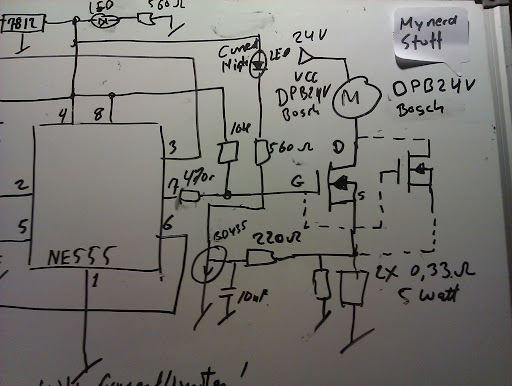 7812
LED
560Ω
My nerd
Stuff
24V
Current
High
LED
VCC
DPB24V
Bosch
M
DPB24V
Bosch
4
8
3
10k
560Ω
D
470r
7
G
S
2
5
6
NE555
1
BD435
220Ω
10uF
2X 0,33Ω
5 Watt